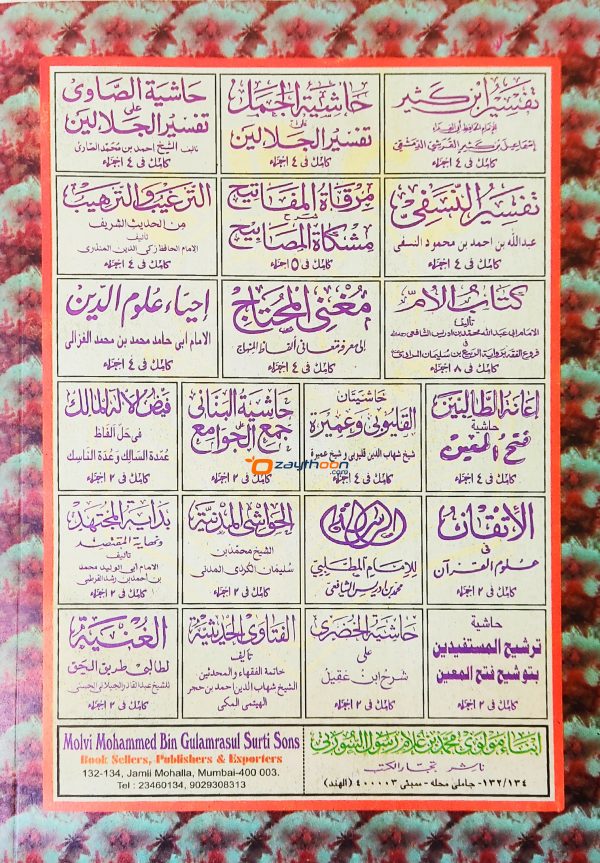 تفسير ابن كثير
للإمام الحافظ أبي الفداء
إسماعيل بن كثير القرشي الدمشقي
كامل في ٤ اجزاء
حاشية الجمل
على
تفسير الجلالين
كامل في ٤ اجزاء
حاشية الصاوى
على
تفسير الجلالين
تاليف الشيخ احمد بن محمد الصاوى
كامل في ٤ اجزاء
تفسير النسفى
عبدالله بن احمد بن محمود النسفى
كامل في ٤ اجزاء
مرقاة المفاتيح
شرح
مشكاة المصابيح
كامل في ٥ اجزاء
الترغيب و الترهيب
من الحديث الشريف
تأليف
الامام الحافظ زكى الدين المنذرى
كامل في ٤ اجزاء
كتاب الأم
تأليف
الامام ابى عبدالله محمد بن ادريس الشافعى
فى
فروع الفقه برواية الربيع بن سليمان المرادى
كامل في ٨ اجزاء
مغنى المحتاج
إلى معرفة معانى ألفاظ المنهاج
كامل في ٤ اجزاء
إحياء علوم الدين
الامام أبى حامد محمد بن محمد الغزالى
كامل في ٤ اجزاء
إعانة الطالبين
حاشية
فتح المعين
كامل في ٤ اجزاء
حاشيتان
القليوبى وعميرة
شيخ شهاب الدين قليوبى و شيخ عميرة
كامل في ٤ اجزاء
حاشية البنانى
على
جمع الجوامع
كامل في ٢ اجزاء
فيض الاله المالك
فى حل الفاظ
عمدة السالك و عدة الناسك
كامل في ٢ اجزاء
Ozaythoon
.com
الإتقان
فى
علوم القرآن
كامل في ٢ اجزاء
الرسالة
للإمام المطلبى
محمد بن ادريس الشافعى
الحواشى المدنية
الشيخ محمد بن
سليمان الكردى المدنى
كامل في ٢ اجزاء
بداية المجتهد
و نهاية المقتصد
تأليف
الامام أبى الوليد محمد
بن احمد بن رشد القرطبى
كامل في ٢ اجزاء
حاشية
ترشيح المستفيدين
بتوشيح فتح المعين
كامل في ٢ اجزاء
حاشية الخضرى
على
شرح ابن عقيل
كامل في ٢ اجزاء
الفتاوى الحديثية
تأليف
خاتمة الفقهاء والمحدثين
الشيخ شهاب الدين أحمد بن حجر
الهيتمى المكى
الغنية
لطالبى طريق الحق
للشيخ عبدالقادر الجيلانى الحسنى
كامل في ٢ اجزاء
Molvi Mohammed Bin Gulamrasul Surti Sons
Book Sellers, Publishers & Exporters
132-134, Jamli Mohalla, Mumbai-400 003.
Tel : 23460134, 9029308313
ابناء مولوى محمد بن غلام رسول السورتى
ناشر و تجار الكتب
١٣٢/١٣٤- جاملى محله - ممبئى ٤٠٠٠٠٣ (الهند)